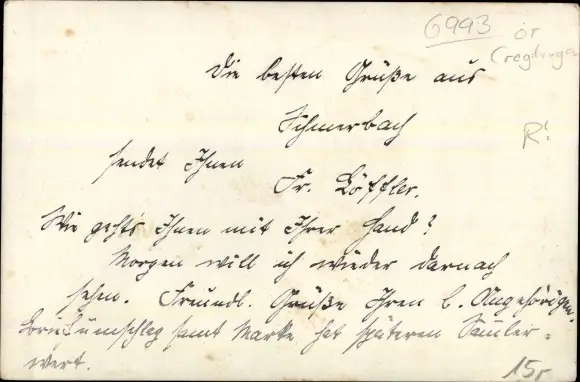 6993 or
(Creglingen
Die besten Grüße aus
Schmerbach
R!
sendet Ihnen
Fr. Löffler.
Wie geht's Ihnen mit Ihrer Hand?
Morgen will ich wieder darnach
sehen. Freundl. Grüße Ihren l. Angehörigen.
Briefumschlag samt Marke hat späteren Samler-
wert.
15,-